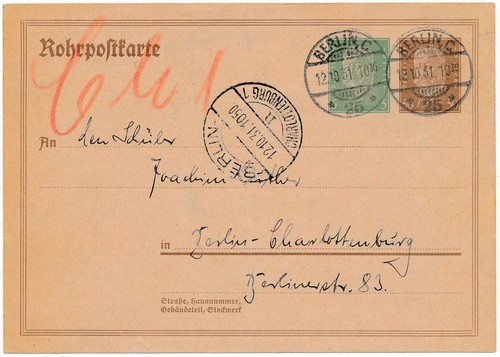 Rohrpostkarte
Ch 1
BERLIN, C.
12.10.31.10
* 25
BERLIN, C.
12.10.31.10
* 25
5
BERLIN-
12.10.31.1050
CHARLOTTENBURG 1
An den Schüler
Joachim
in Berlin-Charlottenburg
Berlinerstr. 83.
Straße, Hausnummer,
Gebäudeteil, Stockwerk